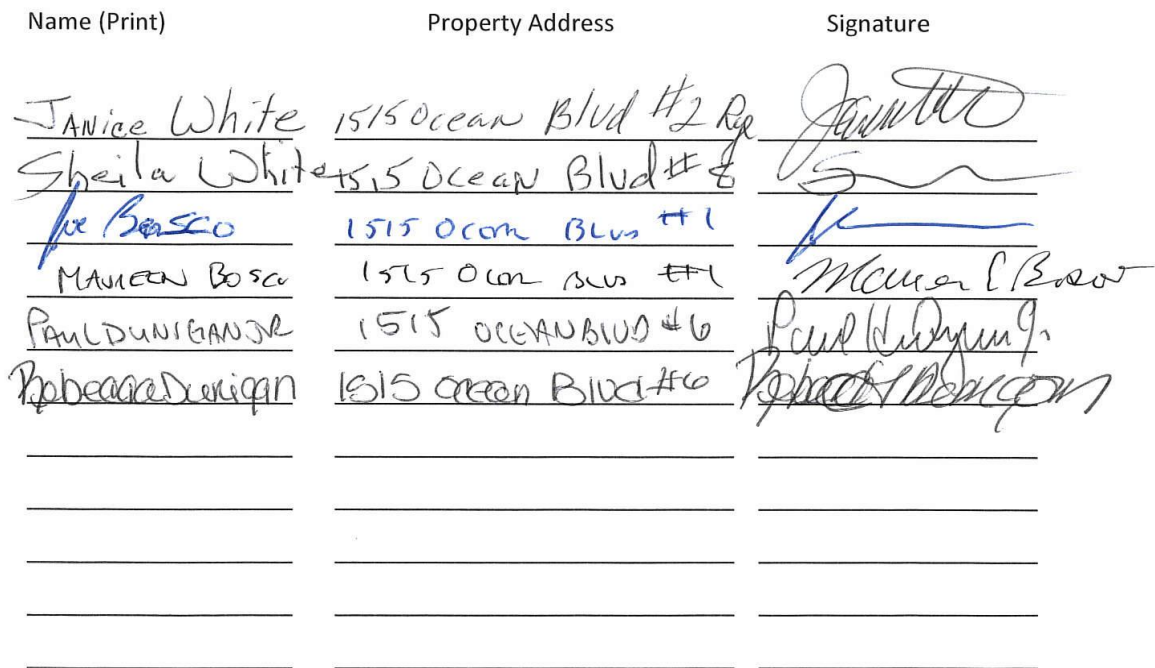 Name (Print) Property Address Signature
Janice White 1515 Ocean Blvd #2 Rye
Sheila White 1515 Ocean Blvd # 8
Joe Bosco 1515 Ocean Blvd #1
Maureen Bosco 1515 Ocean Blvd #1 Maureen Bosco
PAUL DUNIGAN JR 1515 OCEAN BLVD #6 Paul Jr.
Rebecca Dunigan 1515 Ocean Blvd #6